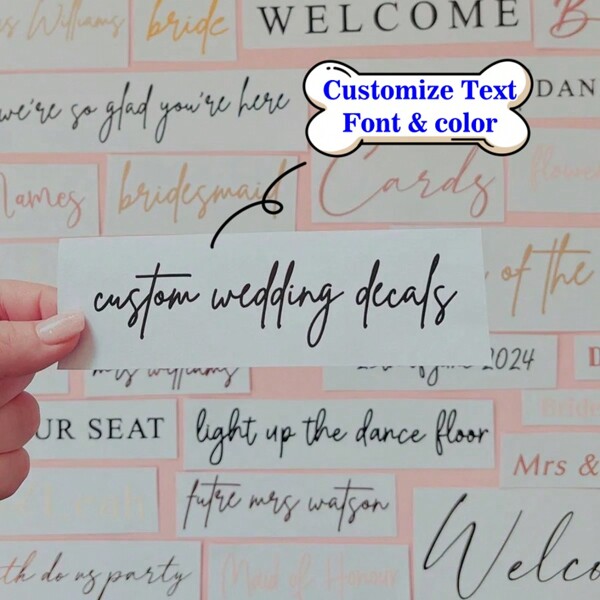 Williams
bride
WELCOME
we're so glad you're here
Customize Text
Font & color
DAN
Names
bridesmaid
Cards
flowe
custom wedding decals
of the
mrs williams
of june 2024
UR SEAT
light up the dance floor
Bride
Mrs &
futre mrs watson
Welco
th do us party
Maid of Honour